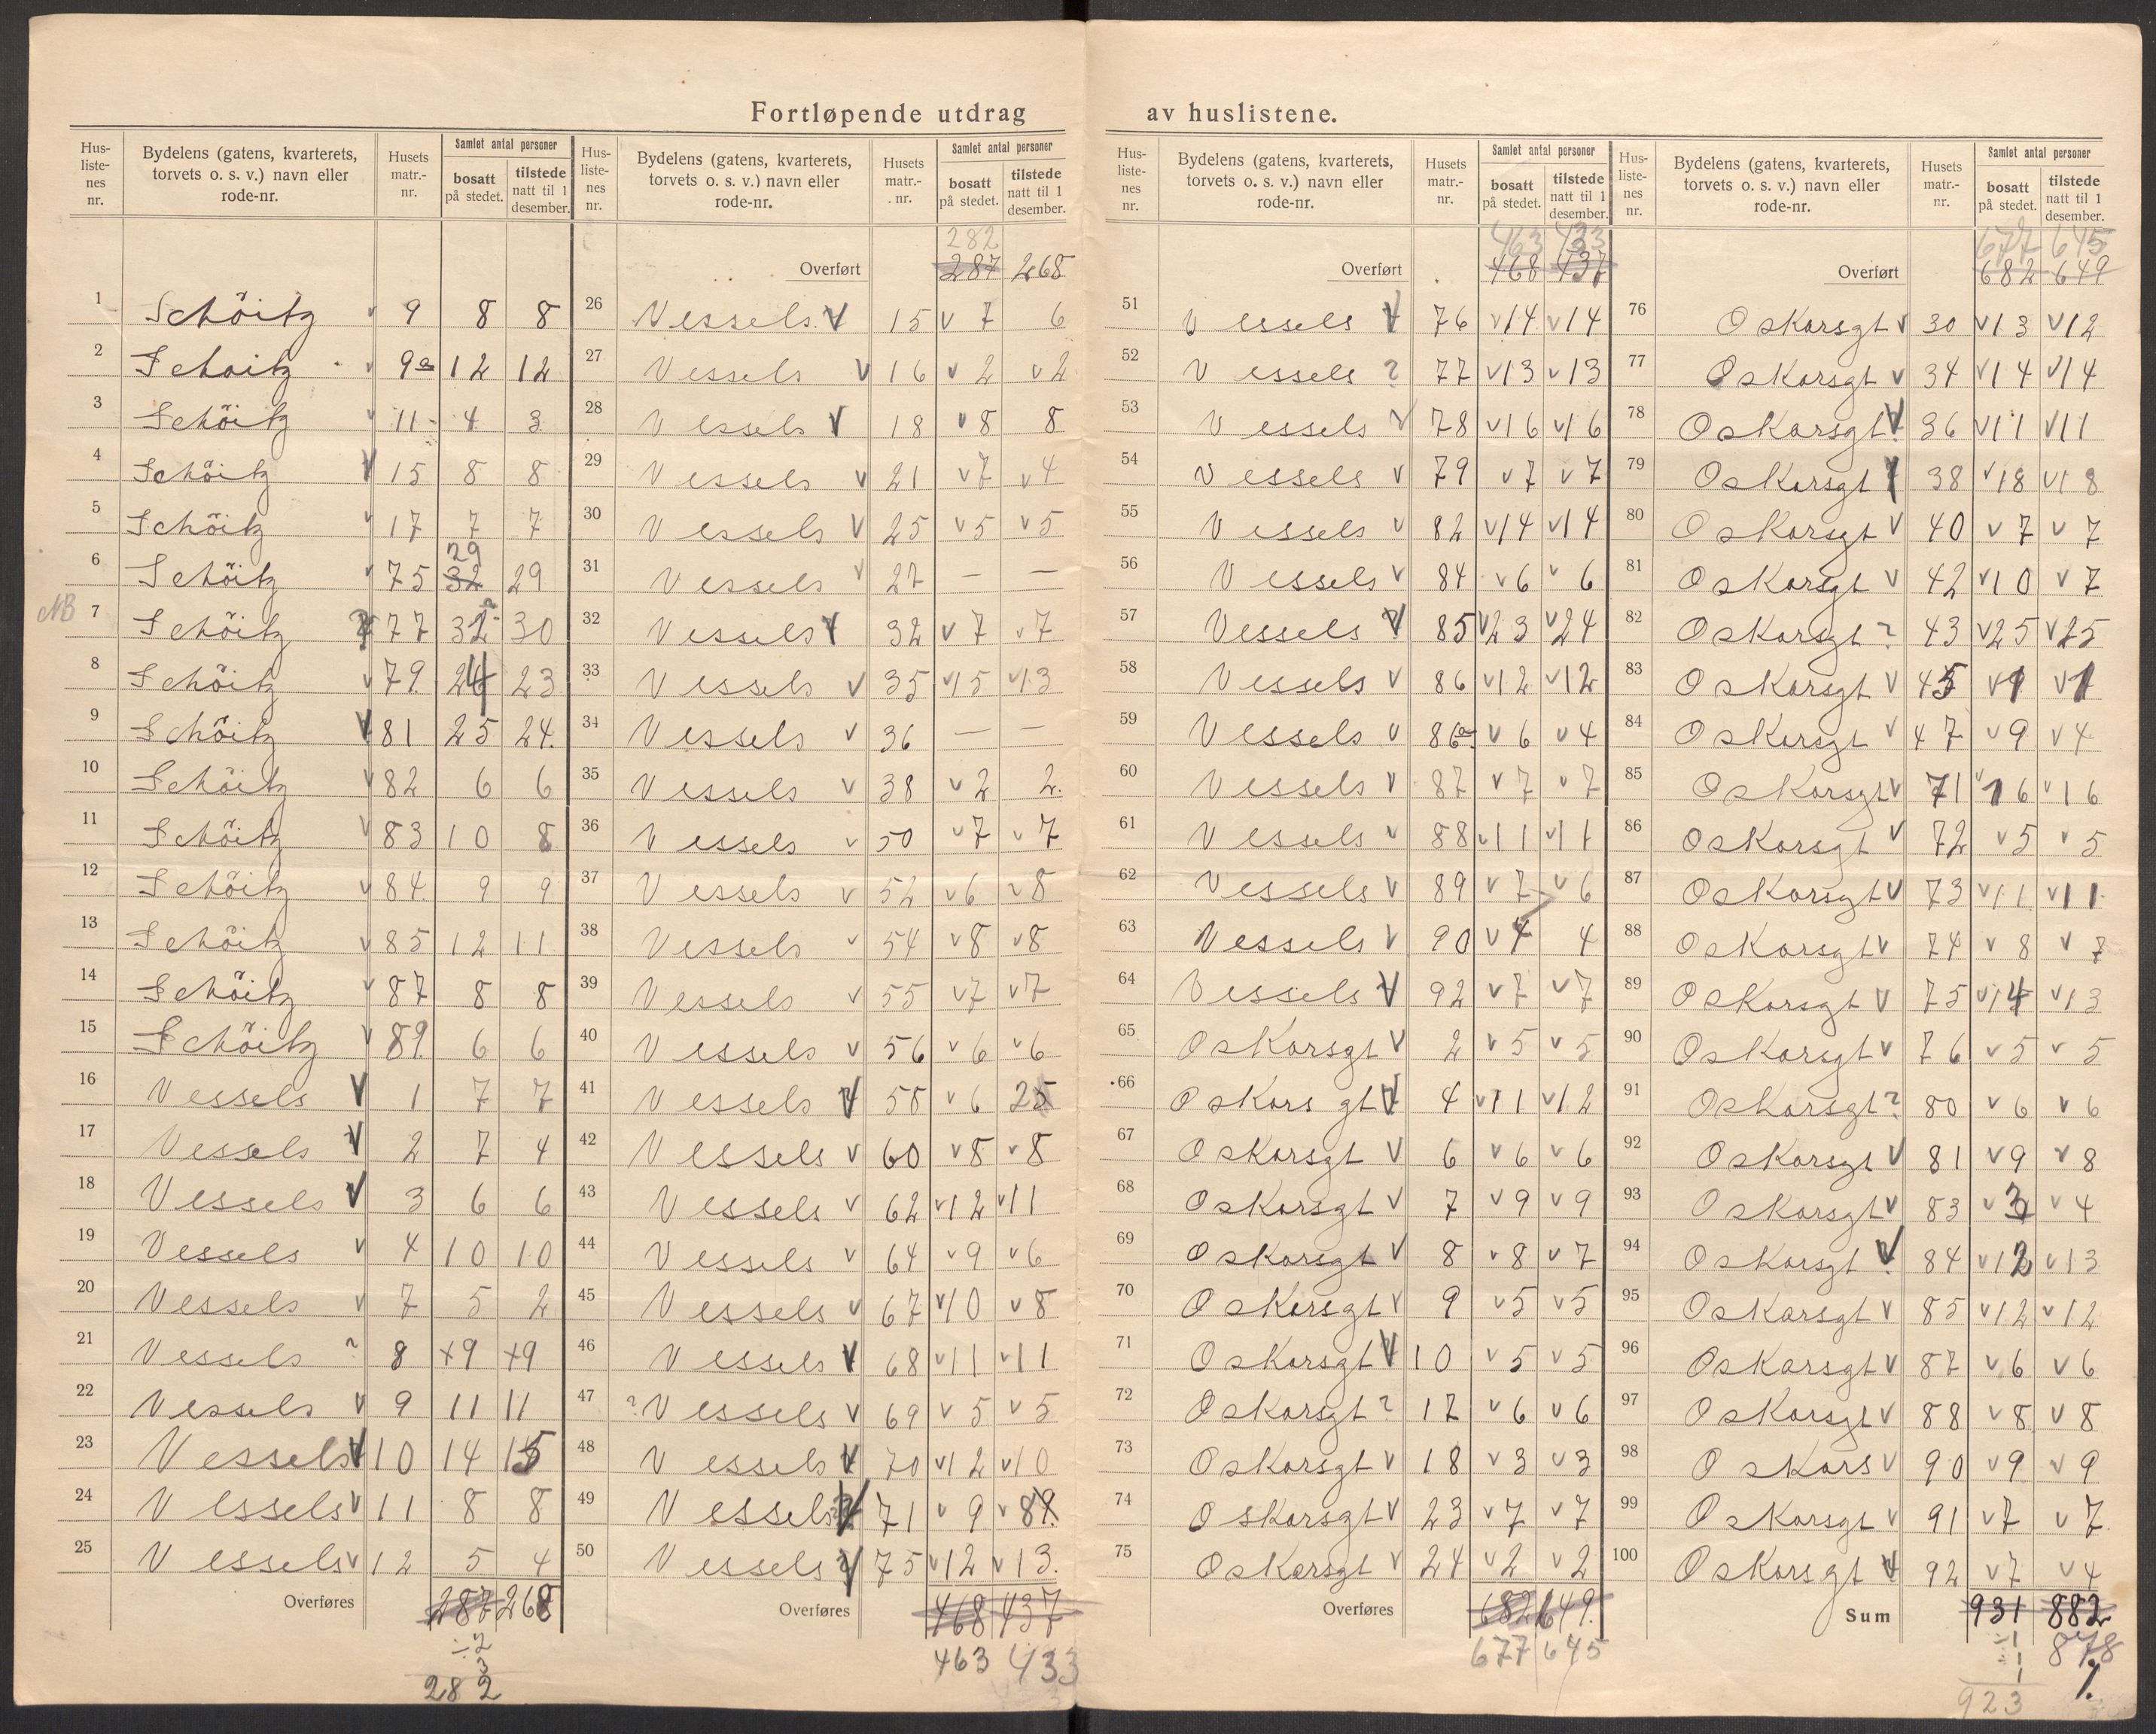 Fortløpende utdrag av huslistene.
Hus-listenes nr. | Bydelens (gatens, kvarterets, torvets o. s. v.) navn eller rode-nr. | Husets matr.-nr. | Samlet antal personer | bosatt på stedet. | tilstede natt til 1 desember.
1 Schöitz v 9 8 8
2 Schoitz v 9a 12 12
3 Schöitz v 11 4 3
4 Schöitz V 15 8 8
5 Schöitz v 17 7 7
29
6 Schöitz v 75 32 29
NB 7 Schöitz 77 32 30
8 Schöitz v 79. 24 23
9 Schöitz V 81 25 24.
10 Schöitz v 82 6 6
11 Schöitz v 83 10 8
12 Schöitz v 84 9 9
13 Schöitz v 85 12 11
14 Schöitz v 87 8 8
15 Schöitz v 89. 6 6
16 Vessels V 1 7 7
17 Vessels V 2 7 4
18 Vessels V 3 6 6
19 Vessels v 4 10 10
20 Vessels v 7 5 2
21 Vessels ? 8 +9 +9
22 Vessels v 9 11 11
23 Vessels V 10 14 15
24 Vessels v 11 8 8
25 Vessels v 12 5 4
Overføres 287 268
÷2
3
282
Hus-listenes nr. | Bydelens (gatens, kvarterets, torvets o. s. v.) navn eller rode-nr. | Husets matr.-nr. | Samlet antal personer | bosatt på stedet. | tilstede natt til 1 desember.
282
Overført 287 268
26 Vessels. V 15 v 7 6
27 Vessels V 16 v 2 v 2
28 Vessels V 18 v 8 8
29 Vessels v 21 v 7 v 4
30 Vessels V 25 v 5 v 5
31 Vessels v 27 — —
32 Vessels V 32 v 7 v 7
33 Vessels v 35 v 15 v 13
34 Vessels v 36 — —
35 Vessels v 38 v 2 2.
36 Vessels v 50 v 7 v 7
37 Vessels v 52 v 6 v 8
38 Vessels v 54 v 8 v 8
39 Vessels v 55 v 7 v 7
40 Vessels v 56 v 6 v 6
41 Vessels V 58 v 6 25
42 Vessels v 60 v 8 v 8
43 Vessels v 62 v 12 v 11
44 Vessels v 64 v 9 v 6
45 Vessels v 67 v 10 v 8
46 Vessels V 68 v 11 v 11
47 ? Vessels v 69 v 5 v 5
48 Vessels V 70 v 12 v 10
49 Vessels 71 v 9 v 89.
50 Vessels V 75 v 12 v 13.
Overføres 468 437
463 433
Hus-listenes nr. | Bydelens (gatens, kvarterets, torvets o. s. v.) navn eller rode-nr. | Husets matr.-nr. | Samlet antal personer | bosatt på stedet. | tilstede natt til 1 desember.
463 433
Overført 468 437
51 Vessels V 76 v 14 v 14
52 Vessels ? 77 v 13 v 13
53 Vessels v 78 v 16 v 16
54 Vessels v 79 v 7 v 7
55 Vessels v 82 v 14 v 14
56 Vessels v 84 v 6 v 6
57 Vessels V 85 v 23 v 24
58 Vessels v 86 v 12 v 12
59 Vessels v 86a v 6 v 4
60 Vessels v 87 v 7 v 7
61 Vessels v 88 v 11 v 11
62 Vessels v 89 v 7 v 6
63 Vessels v 90 v 4 4
64 Vessels V 92 v 7 v 7
65 Oskarsgt V 2 v 5 v 5
66 Oskars gt V 4 v 11 v 12
67 Oskarsgt V 6 v 6 v 6
68 Oskarsgt v 7 v 9 v 9
69 Oskarsgt V 8 v 8 v 7
70 Oskarsgt v 9 v 5 v 5
71 Oskarsgt V 10 v 5 v 5
72 Oskarsgt ? 12 v 6 v 6
73 Oskarsgt v 18 v 3 v 3
74 Oskarsgt v 23 v 7 v 7
75 Oskarsgt v 24 v 2 v 2
Overføres 682 649.
677 645
Hus-listenes nr. | Bydelens (gatens, kvarterets, torvets o. s. v.) navn eller rode-nr. | Husets matr.-nr. | Samlet antal personer | bosatt på stedet. | tilstede natt til 1 desember.
677 645
Overført 682 649
76 Oskarsgt v 30 v 13 v 12
77 Oskarsgt v 34 v 14 v 14
78 Oskarsgt V 36 v 11 v 11
79 Oskarsgt 38 v 18 v 18
80 Oskarsgt v 40 v 7 v 7
81 Oskarsgt v 42 v 10 v 7
82 Oskarsgt ? 43 v 25 v 25
83 Oskarsgt V 45 v 1 v 1
84 Oskarsgt v 47 v 9 v 4
85 Oskarsgt v 71 v 16 v 16
86 Oskarsgt v 72 v 5 v 5
87 Oskarsgt V 73 v 11 v 11
88 Oskarsgt v 74 v 8 v 7
89 Oskarsgt V 75 v 14 v 13
90 Oskarsgt v 76 v 5 v 5
91 Oskarsgt ? 80 v 6 v 6
92 Oskarsgt V 81 v 9 v 8
93 Oskarsgt v 83 v 3 v 4
94 Oskarsgt V 84 v 12 v 13
95 Oskarsgt v 85 v 12 v 12
96 Oskarsgt v 87 v 6 v 6
97 Oskarsgt v 88 v 8 v 8
98 Oskars v 90 v 9 v 9
99 Oskarsgt v 91 v 7 v 7
100 Oskarsgt V 92 v 7 v 4
Sum 931 882
÷1 878
÷1
1 1.
923